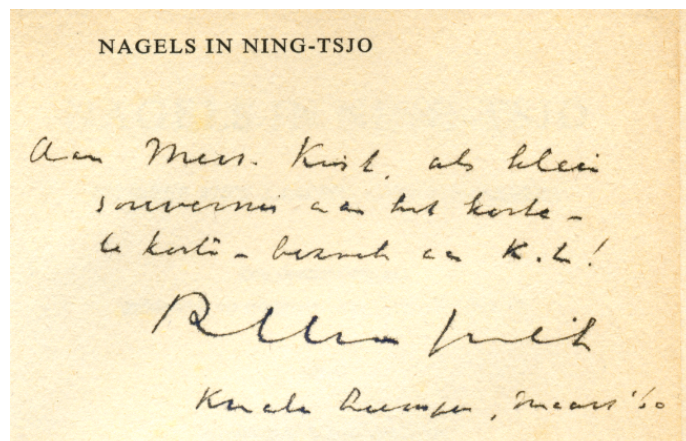 NAGELS IN NING-TSJO
Aan Mevr. Kist, als klein
souvenir aan het korte -
te korte - bezoek aan K.L!
R H van Gulik
Kuala Lumpur, maart '60